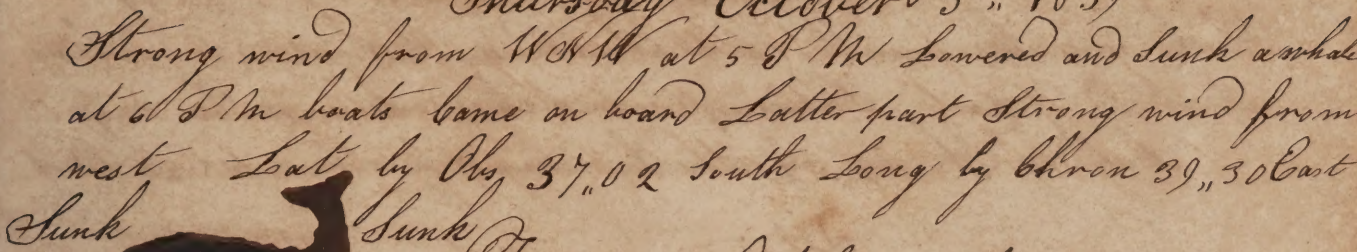 Thursday October 3
Strong wind from WNW at 5 P M Lowered and Sunk a whale
at 6 P M boats Came on board Latter part Strong wind from
west Lat by Obs, 37,,02 South Long by Chron 39,,30 East
Sunk Sunk